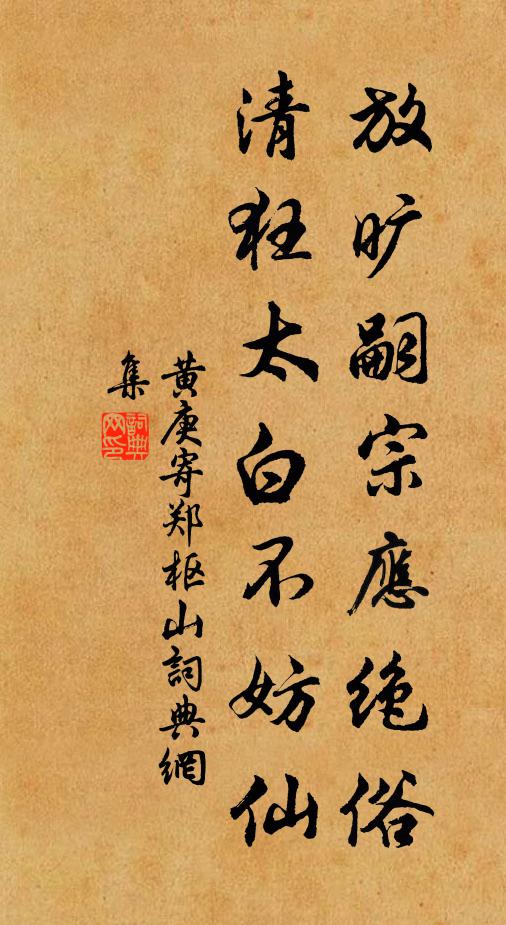 放旷嗣宗應绝俗
清狂太白不妨仙
黄庚寄郑枢山詞典網
集
詞典
网印